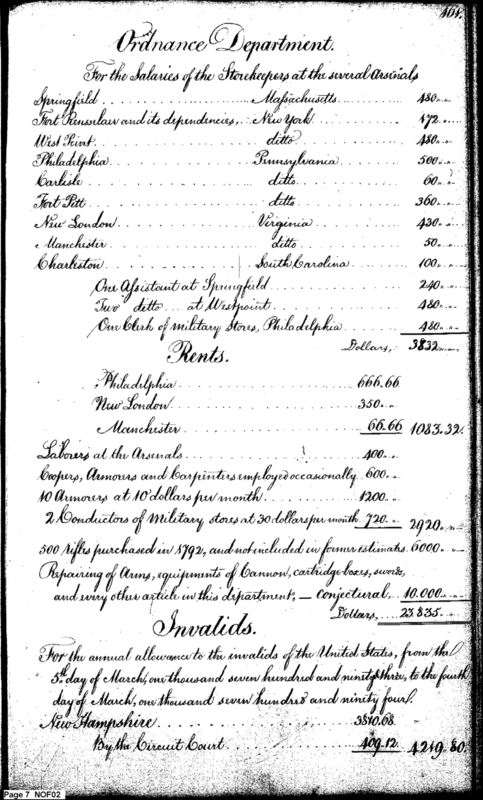 464.
Ordnance Department.
For the Salaries of the Storekeepers at the several Arsinals
Springfield Massachusetts 480
Fort Rensselaer and its dependencies, New York 172
West Point ditto 480
Philadelphia Pennsylvania 500
Carlisle ditto 60
Fort Pitt ditto 360
New London Virginia 430
Manchester ditto 50
Charleston South Carolina 100
One Assistant at Springfield 240
Two ditto at Westpoint 480
One Clerk of military Stores, Philadelphia 480
Dollars, 3832
Rents.
Philadelphia 666.66
New London 350
Manchester 66.66 1083.32.
Laborers at the Arsenals 400
Coopers, Armorers and Carpenters employed occasionally 600
10 Armorers at 10 dollars per month 1200
2 Conductors of Military stores at 30 dollars per month 720 2920
500 rifles purchased in 1792, and not included in former estimates. 6000
Repairing of Arms, equipments of Cannon, cartridge boxes, swords,
and every other article in this department, — conjectural, 10.000
Dollars, 23.835
Invalids.
For the annual allowance to the invalids of the United States, from the
5th day of March, one thousand seven hundred and ninety three, to the fourth
day of March, one thousand seven hundred and ninety four.
New Hampshire 3810.68
By the Circuit Court 409.12 4219.80
Page 7 NOF02